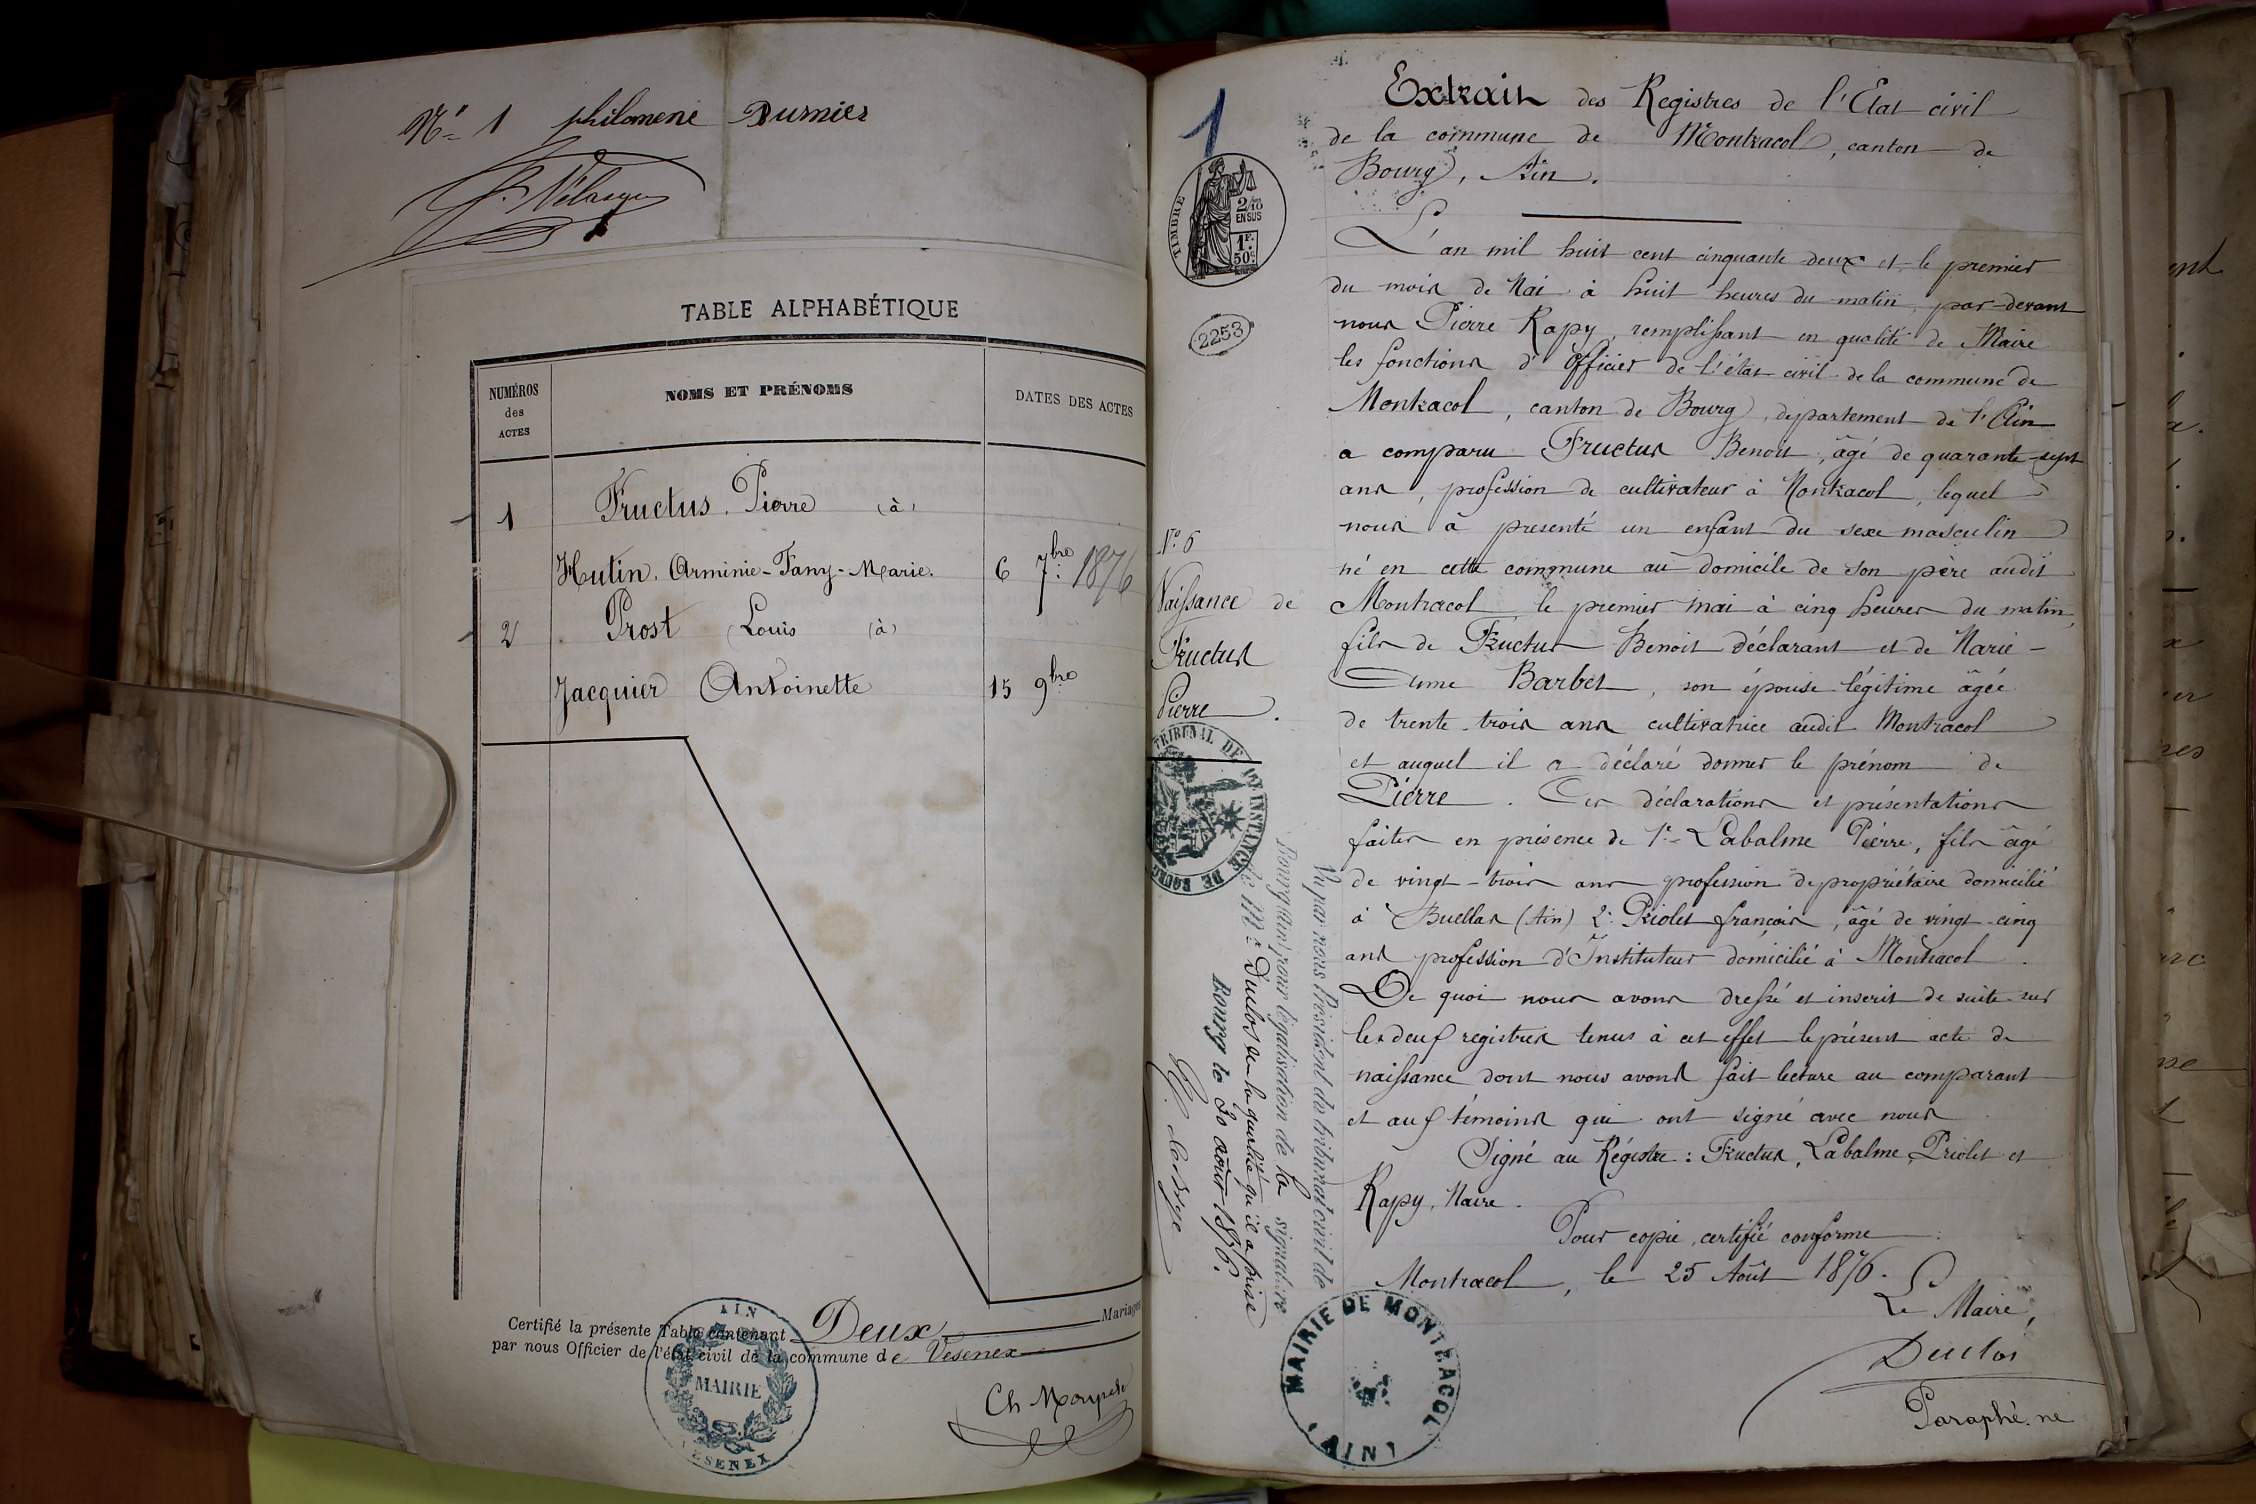 N° 1 philomene Dumier
TABLE ALPHABÉTIQUE
NUMÉROS
des
ACTES
NOMS ET PRÉNOMS
DATES DES ACTES
1 Fructus. Pierre (à)
Hutin. Arminie-Fany-Marie. 6 7bre 1876
2 Prost Louis (à)
Jacquier Antoinette 15 9bre
Certifié la présente Table contenant Deux Mariages
par nous Officier de l'état civil de la commune de Vesenex
AIN
MAIRIE
VESENEX
1
TIMBRE
2/10
EN SUS
1F.
50c.
2253
Extrait des Registres de l'Etat civil
de la commune de Montracol, canton de
Bourg, Ain.
L'an mil huit cent cinquante deux et le premier
du mois de Mai à huit heures du matin, par-devant
nous Pierre Rapy, remplissant en qualité de Maire
les fonctions d'officier de l'état civil de la commune de
Montracol, canton de Bourg, département de l'Ain
a comparu Fructus Benoit, âgé de quarante-sept
ans, profession de cultivateur à Montracol, lequel
nous à presenté un enfant du sexe masculin
né en cette commune au domicile de son père audit
Montracol le premier mai à cinq heures du matin,
fils de Fructus Benoit déclarant et de Marie-
Barbet, son épouse légitime âgée
de trente-trois ans cultivatrice audit Montracol
et auquel il a déclaré donner le prénom de
Pierre. Ces déclarations et présentations
faites en présence de 1° Labalme Pierre, fils âgé
de vingt-trois ans profession de propriétaire domicilié
à Buellas (Ain) 2° Priolet françois, âgé de vingt-cinq
ans profession d'Instituteur domicilié à Montracol.
De quoi nous avons dressé et inscrit de suite sur
les deux registres tenus à cet effet le présent acte de
naissance dont nous avons fait lecture au comparant
et aux témoins qui ont signé avec nous
Signé au Régistre : Fructus, Labalme, Priolet et
Rapy, Maire.
Pour copie certifié conforme
Montracol, le 25 Août 1876.
Le Maire,
Duclos
Paraphé. ne
N° 6
Naissance de
Fructus
Pierre.
TRIBUNAL DE 1RE INSTANCE DE BOURG
Vu par nous Président du tribunal civil de
Bourg (Ain) pour légalisation de la signature
de Mr Duclos en la qualité qu'il a prise
Bourg le 30 août 1876.
MAIRIE DE MONTRACOL
(AIN)